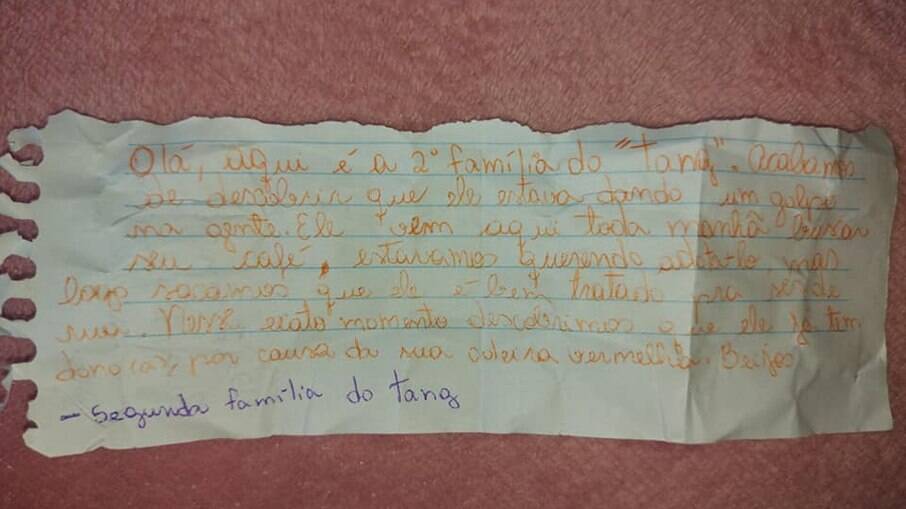 Olá, aqui é a 2° família do "tang". Acabamos
de descobrir que ele estava dando um golpe
na gente. Ele vem aqui toda manhã buscar
seu café, estavamos querendo adota-lo, mas
logo sacamos que ele é bem tratado pra ser de
rua. Nesse exato momento descobrimos que ele já tem
dono(a), por causa da sua coleira vermelha. Beijos
- Segunda família do tang